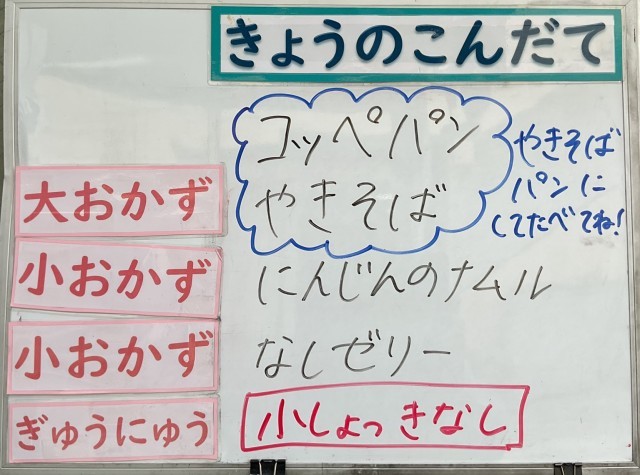 きょうのこんだて
コッペパン
大おかず やきそば
やきそば
パンに
してたべてね!
小おかず にんじんのナムル
小おかず なしゼリー
ぎゅうにゅう 小しょっきなし